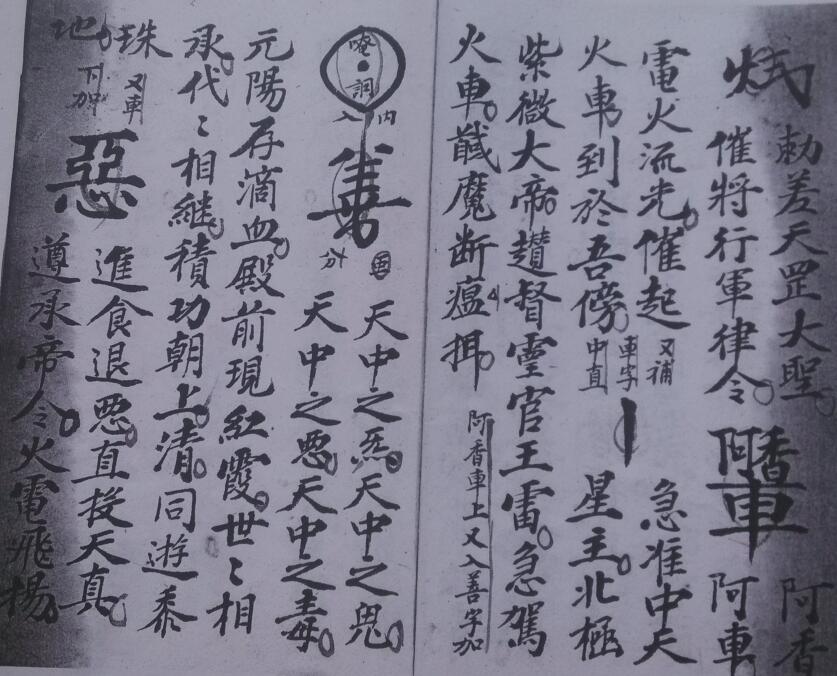 勅差天罡大聖
催將行軍律令
阿香車
阿香
阿車
電火流光催起
又補
車字
中直
急准中天
火車到於吾傍
星主北極
紫微大帝 督靈官王雷急駕
火車馘魔断瘟
阿香車上又入善字加
唵
內
入
天中之炁天中之鬼
天中之惡天中之毒
元陽存滴血殿前現紅霞世〻相
承代〻相継積功朝上清同遊黍
珠
又車
地
下加
惡
進食退惡直授天真
遵承帝令火電飛揚